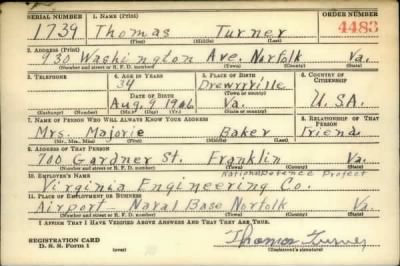 SERIAL NUMBER 1. NAME (Print) ORDER NUMBER
1739 Thomas Turner 4483
(First) (Middle) (Last)
2. ADDRESS (Print)
930 Washington Ave. Norfolk Va.
(Number and street or R. F. D. number) (Town) (County) (State)
3. TELEPHONE 4. AGE IN YEARS 5. PLACE OF BIRTH 6. COUNTRY OF CITIZENSHIP
34 Drewryville
DATE OF BIRTH (Town or county)
Aug, 9 1906 Va. U.S.A.
(Exchange) (Number) (Mo.) (Day) (Yr.) (State or country)
7. NAME OF PERSON WHO WILL ALWAYS KNOW YOUR ADDRESS 8. RELATIONSHIP OF THAT PERSON
Mrs. Majorie Baker friend
(Mr., Mrs., Miss) (First) (Middle) (Last)
9. ADDRESS OF THAT PERSON
700 Gardner St. Franklin Va.
(Number and street or R. F. D. number) (Town) (County) (State)
10. EMPLOYER'S NAME National Defence Project
Virginia Engineering Co.
11. PLACE OF EMPLOYMENT OR BUSINESS
Airport Naval Base Norfolk Va.
(Number and street or R. F. D. number) (Town) (County) (State)
I AFFIRM THAT I HAVE VERIFIED ABOVE ANSWERS AND THAT THEY ARE TRUE.
REGISTRATION CARD
D. S. S. Form 1
Thomas Turner
(Registrant's signature)